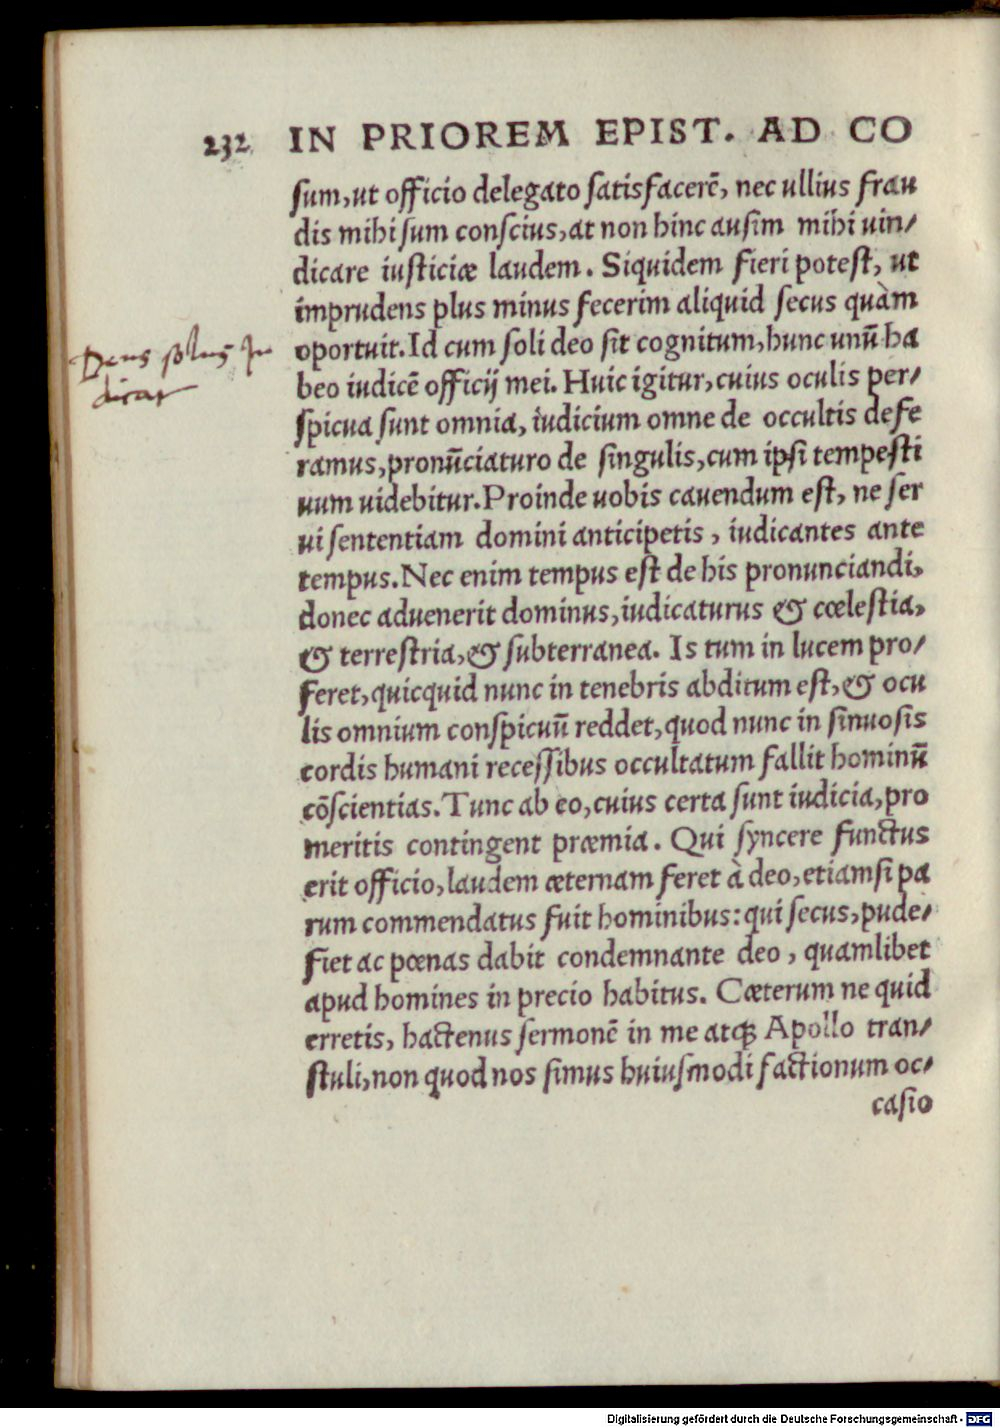 232 IN PRIOREM EPIST. AD CO
sum, ut officio delegato satisfacerē, nec ullius frau
dis mihi sum conscius, at non hinc ausim mihi uin/
dicare iusticiæ laudem. Siquidem fieri potest, ut
imprudens plus minus fecerim aliquid secus quàm
oportuit. Id cum soli deo sit cognitum, hunc unū ha
Deus solus Iu
dicat
beo iudicē officij mei. Huic igitur, cuius oculis per/
spicua sunt omnia, iudicium omne de occultis defe
ramus, pronūciaturo de singulis, cum ipsi tempesti
uum uidebitur. Proinde uobis cauendum est, ne ser
ui sententiam domini anticipetis, iudicantes ante
tempus. Nec enim tempus est de his pronunciandi,
donec aduenerit dominus, iudicaturus & cœlestia,
& terrestria, & subterranea. Is tum in lucem pro/
feret, quicquid nunc in tenebris abditum est, & ocu
lis omnium conspicuū reddet, quod nunc in sinuosis
cordis humani recessibus occultatum fallit hominū
cōscientias. Tunc ab eo, cuius certa sunt iudicia, pro
meritis contingent præmia. Qui syncere functus
erit officio, laudem æternam feret à deo, etiamsi pa
rum commendatus fuit hominibus: qui secus, pude/
fiet ac pœnas dabit condemnante deo, quamlibet
apud homines in precio habitus. Cæterum ne quid
erretis, hactenus sermonē in me atq; Apollo tran/
stuli, non quod nos simus huiusmodi factionum oc/
casio
Digitalisierung gefördert durch die Deutsche Forschungsgemeinschaft - DFG